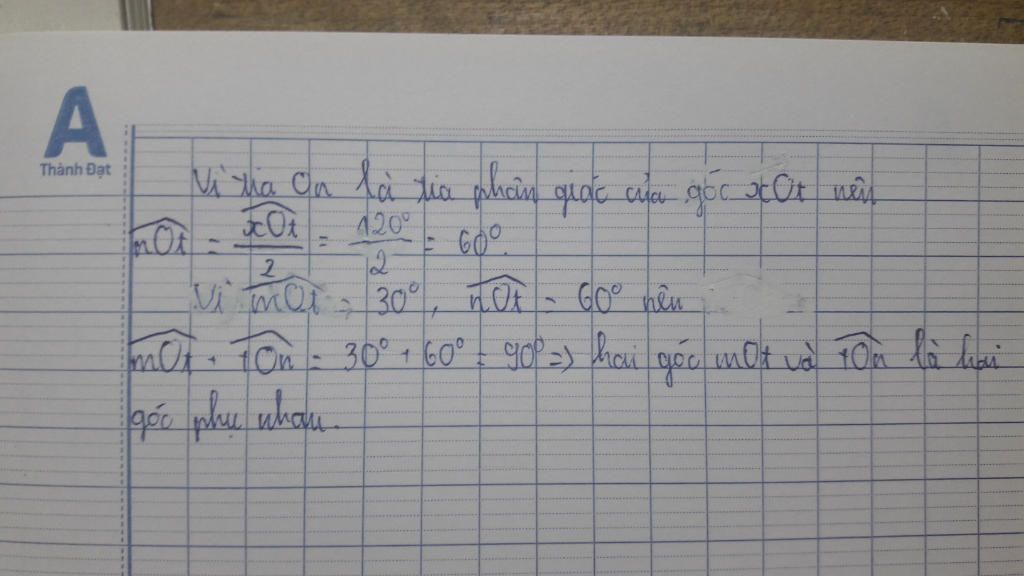 A
Thành Đạt
Vì tia On là tia phân giác của góc xOt nên
nOt = xOt/2 = 120°/2 = 60°.
Vì mOt = 30°, nOt = 60° nên
mOt + tOn = 30° + 60° = 90° => hai góc mOt và tOn là hai
góc phụ nhau.